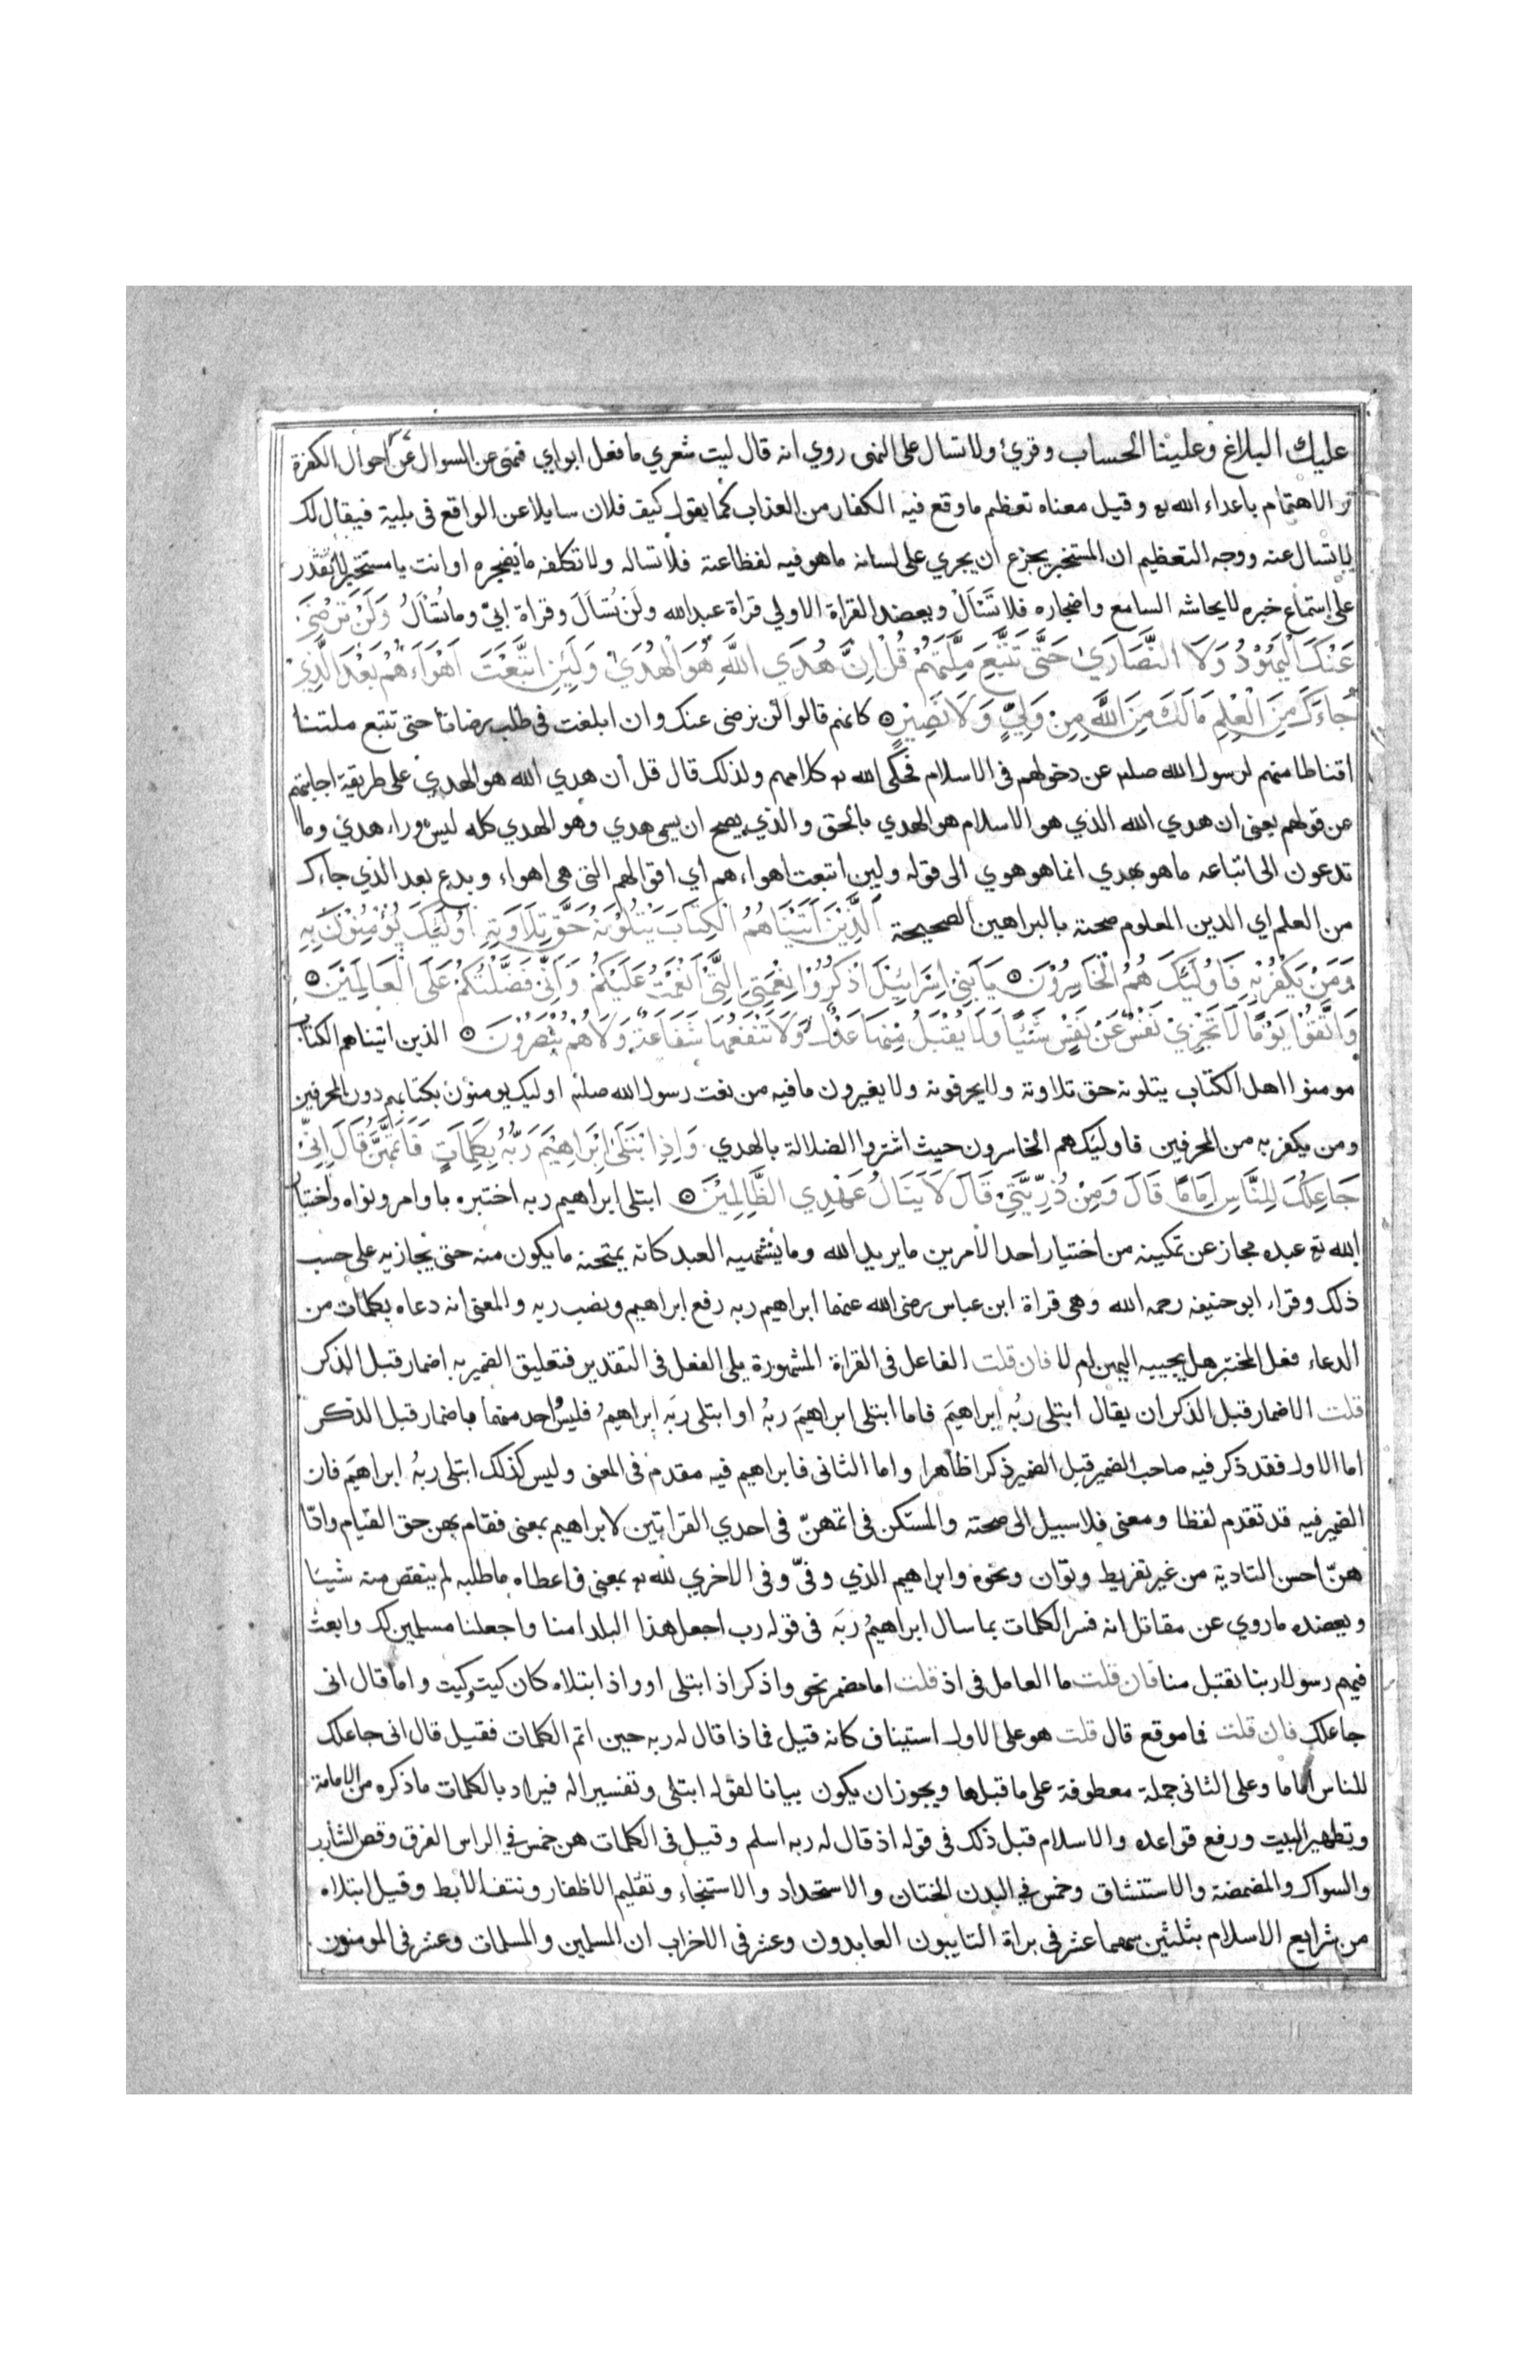 عليك البلاغ وعلينا الحساب وقرئ ولا تسال على النهى روي انه قال ليت شعري ما فعل ابواي فنهى عن السوال عن احوال الكفرة
و الاهتمام باعداء الله تع وقيل معناه تعظيم ما وقع فيه الكفار من العذاب كما يقول كيف فلان سايلا عن الواقع فى بلية فيقال لك
لا تسال عنه ووجه التعظيم ان المستخبر يجزع ان يجري على لسانه ما هو فيه لفظاعته فلا تساله ولا تكلفه ما يضجره او انت يا مستخبر لا تقدر
على استماع خبره لايحاشه السامع واضجاره فلا تَسْاَلْ ويعضد القراة الاولي قراة عبد الله ولَنْ تُسْاَلَ وقراة ابيّ وما تُسْاَلُ وَلَنْ تَرْضَى
عَنْكَ الْيَهُوْدُ وَلَا النَّصَارَيٰ حَتَّى تَتَّبِعَ مِلَّتَهُمْ قُلْ اِنَّ هُدَي اللَّهِ هُوَ الْهُدَيٰ وَلَئِنِ اتَّبَعْتَ اَهْوَاءَهُمْ بَعْدَ الَّذِيْ
جَاءَكَ مِنَ الْعِلْمِ مَالَكَ مِنَ اللَّهِ مِنْ وَلِيٍّ وَلَا نَصِيْرٍ ۞ كانهم قالوا لن نرضى عنك وان ابلغت فى طلب رضانا حتى تتبع ملتنا
اقناطا منهم لرسول الله صلم عن دخولهم فى الاسلام فحكى الله تع كلامهم ولذلك قال قل ان هدي الله هو الهدي على طريقة اجابتهم
عن قولهم يعنى ان هدي الله الذي هو الاسلام هو الهدي بالحق والذي يصح ان يسمى هدي وهو الهدي كله ليس وراءه هدي وما
تدعون الى اتباعه ما هو بهدي انما هو هوي الى قوله ولين اتبعت اهواءهم اي اقوالهم التى هى اهواء وبدع بعد الذي جاءك
من العلم اي الدين المعلوم صحته بالبراهين الصحيحة اَلَّذِيْنَ اٰتَيْنَاهُمُ الْكِتَابَ يَتْلُوْنَهُ حَقَّ تِلَاوَتِهِ اُولَئِكَ يُؤْمِنُوْنَ بِهِ
وَمَنْ يَكْفُرْ بِهِ فَاُولَئِكَ هُمُ الْخَاسِرُوْنَ ۞ يَا بَنِيْ اِسْرَائِيْلَ اذْكُرُوْا نِعْمَتِيَ الَّتِيْ اَنْعَمْتُ عَلَيْكُمْ وَاَنِّيْ فَضَّلْتُكُمْ عَلَى الْعَالَمِيْنَ ۞
وَاتَّقُوْا يَوْمًا لَا تَجْزِيْ نَفْسٌ عَنْ نَفْسٍ شَيْئًا وَلَا يُقْبَلُ مِنْهَا عَدْلٌ وَلَا تَنْفَعُهَا شَفَاعَةٌ وَلَا هُمْ يُنْصَرُوْنَ ۞ الذين اتيناهم الكتاب
مومنوا اهل الكتاب يتلونه حق تلاوته ولا يحرفونه ولا يغيرون ما فيه من نعت رسول الله صلم اوليك يومنون بكتابهم دون المحرفين
ومن يكفر به من المحرفين فاوليك هم الخاسرون حيث اشتروا الضلالة بالهدي وَاِذِ ابْتَلَىٰ اِبْرَاهِيْمَ رَبُّهُ بِكَلِمَاتٍ فَاَتَمَّهُنَّ قَالَ اِنِّيْ
جَاعِلُكَ لِلنَّاسِ اِمَامًا قَالَ وَمِنْ ذُرِّيَّتِيْ قَالَ لَا يَنَالُ عَهْدِي الظَّالِمِيْنَ ۞ ابتلى ابراهيم ربه اختبره باوامر ونواه واختبار
الله تع عبده مجاز عن تمكينه من اختيار احد الامرين ما يريد الله وما يشتهيه العبد كانه يمتحنه ما يكون منه حتى يجازيه على حسب
ذلك وقراء ابو حنيفه رحمه الله وهى قراة ابن عباس رضى الله عنهما ابراهيم ربه رفع ابراهيم ونصب ربه والمعنى انه دعاه بكلمات من
الدعاء فعل المختبر هل يجيبه اليهن ام لا فان قلت الفاعل فى القراة المشهورة يلى الفعل فى التقدير فتعليق الضمير به اضمار قبل الذكر
قلت الاضمار قبل الذكر ان يقال ابتلى ربُه ابراهيمَ فاما ابتلى ابراهيمَ ربهُ او ابتلى ربَه ابراهيمُ فليس واحد منهما باضمار قبل الذكر
اما الاول فقد ذكر فيه صاحب الضمير قبل الضمير ذكرا ظاهرا واما الثانى فابراهيم فيه مقدم فى المعنى وليس كذلك ابتلى ربهُ ابراهيمَ فان
الضمير فيه قد تقدم لفظا ومعنى فلا سبيل الى صحته والمستكن فى اتمهنّ فى احدي القراتين لابراهيم بمعنى فقام بهن حق القيام وادّا
هنّ احسن التادية من غير تفريط وتوان ونحوه وابراهيم الذي وفىّ وفى الاخري لله تع بمعنى فاعطاه ما طلبه لم ينقص منه شيئا
ويعضده ما روي عن مقاتل انه فسر الكلمات بما سال ابراهيمُ ربَه فى قوله رب اجعل هذا البلد امنا واجعلنا مسلمين لك وابعث
فيهم رسولا ربنا تقبل منا فان قلت ما العامل فى اذ قلت اما مضمر نحو واذكر اذ ابتلى او واذ ابتلاه كان كيت وكيت واما قال انى
جاعلك فان قلت فما موقع قال قلت هو على الاول استيناف كانه قيل فماذا قال له ربه حين اتم الكلمات فقيل قال انى جاعلك
للناس اماما وعلى الثانى جملة معطوفة على ما قبلها ويجوز ان يكون بيانا لقوله ابتلى وتفسيرا له فيراد بالكلمات ما ذكره من الامامة
وتطهير البيت ورفع قواعده والاسلام قبل ذلك فى قوله اذ قال له ربه اسلم وقيل فى الكلمات هن خمس في الراس الفرق وقص الشارب
والسواك والمضمضة والاستنشاق وخمس في البدن الختان والاستحداد والاستنجاء وتقليم الاظفار ونتف الابط وقيل ابتلاه
من شرايع الاسلام بثلثين سهما عشر فى براة التايبون العابدون وعشر فى الاحزاب ان المسلمين والمسلمات وعشر فى المومنون